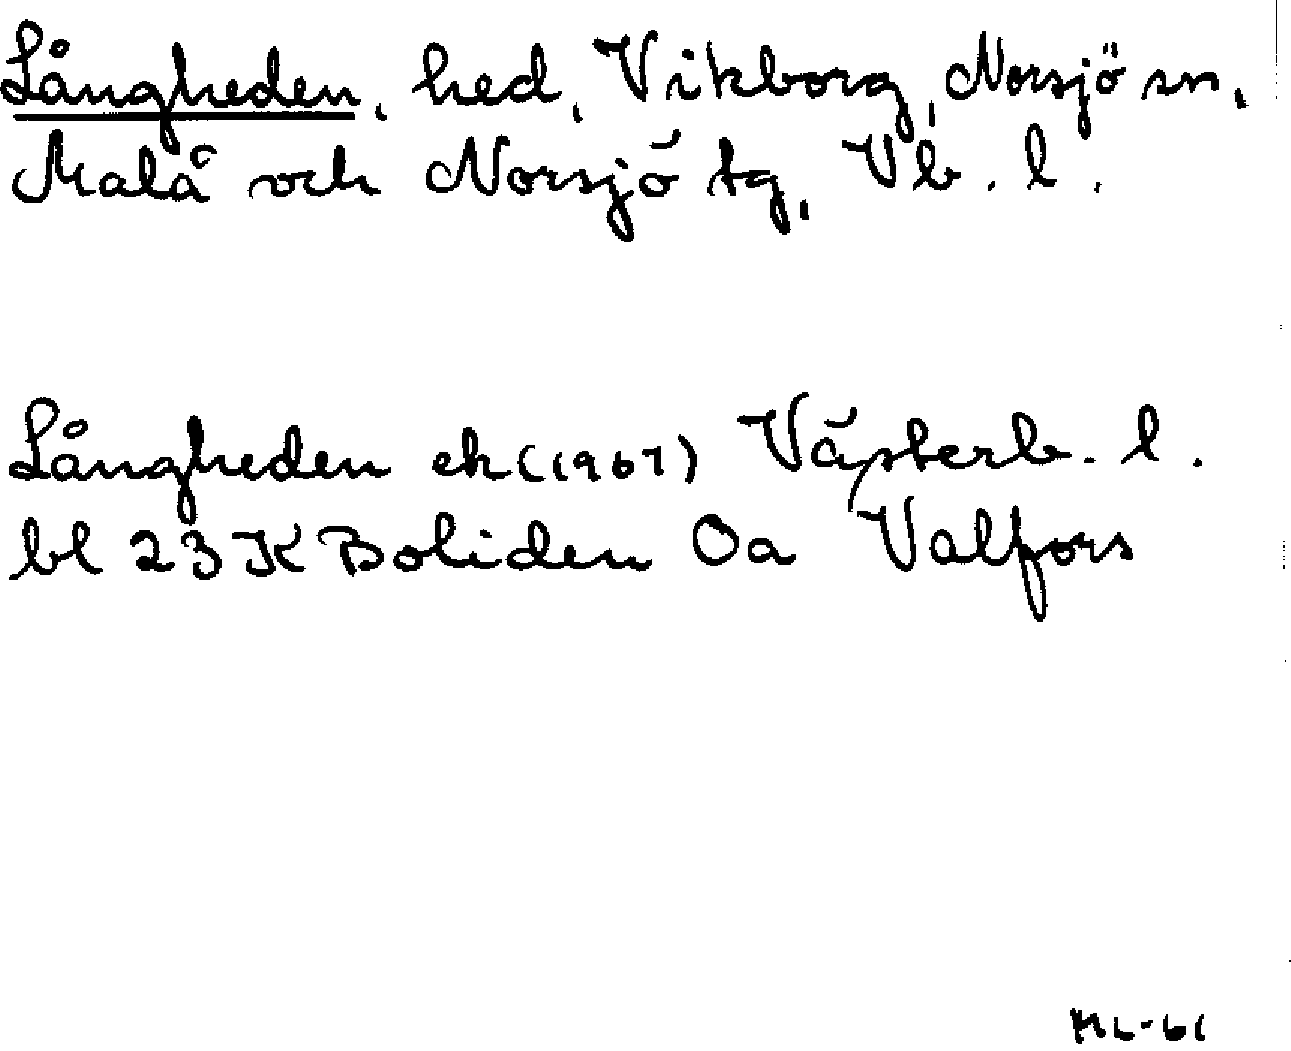 Långheden, hed, Vikborg, Norsjö sn,
Malå och Norsjö tg, Vb. l.
Långheden ek (1967) Västerb. l.
bl 23 K Boliden 0a Valfors